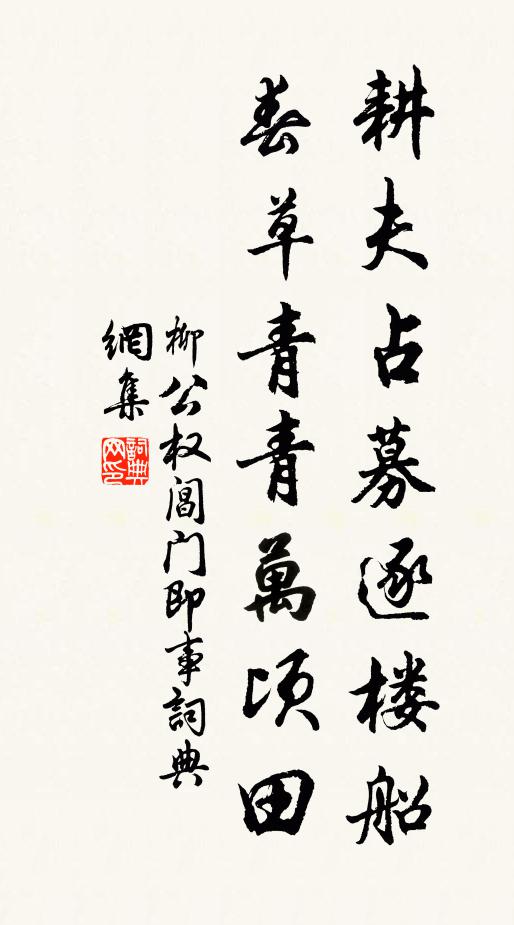 耕夫占募逐楼船
春草青青萬頃田
柳公权阊门即事詞典
網集
詞典
网印